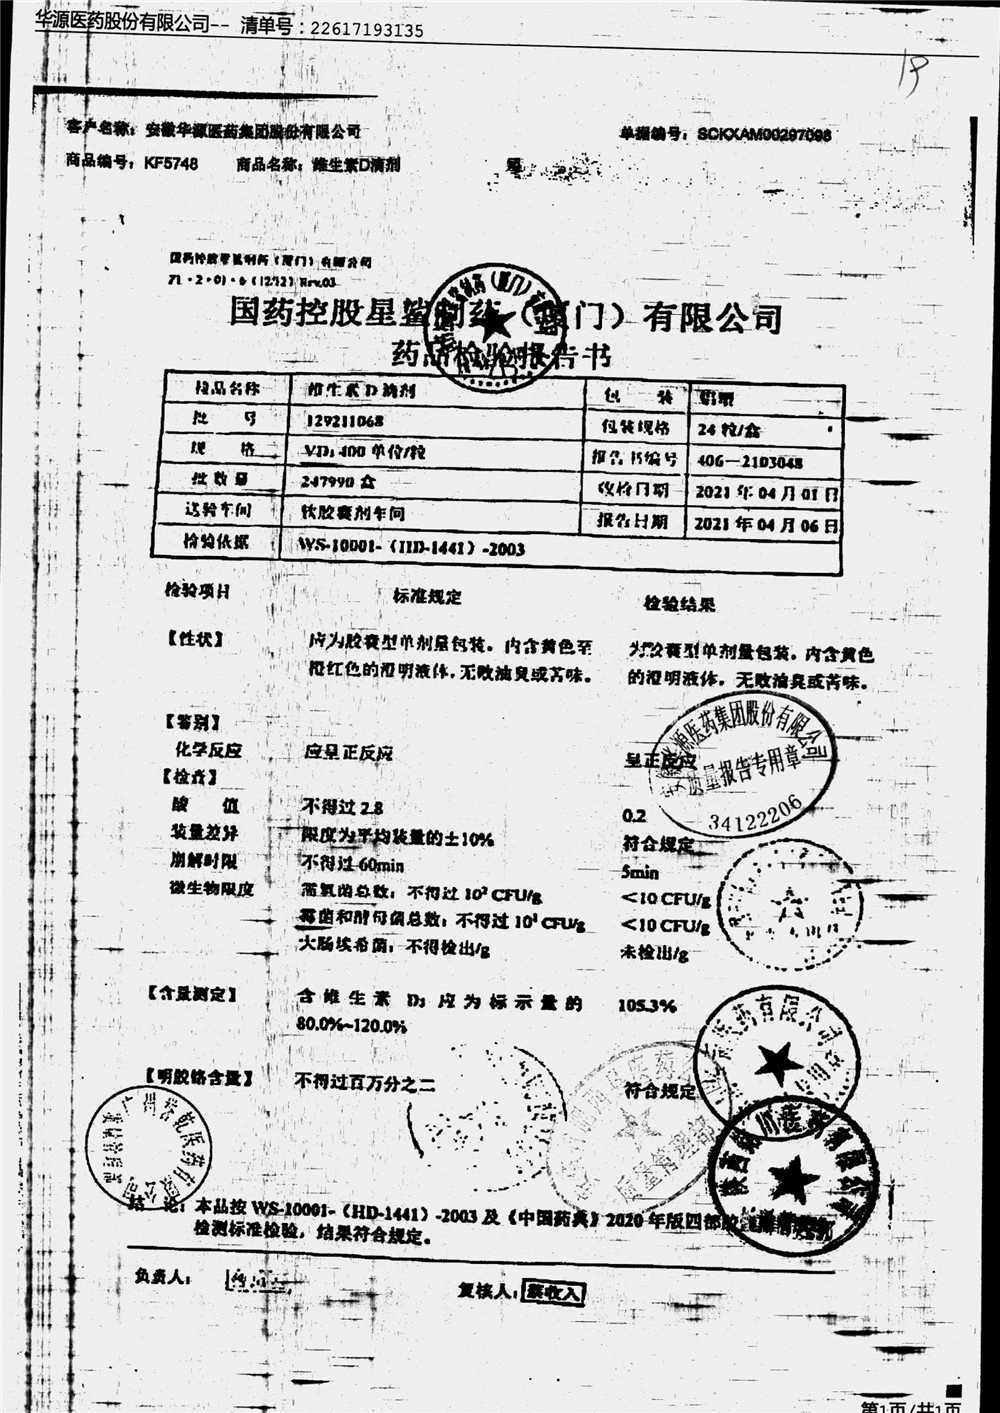 华源医药股份有限公司-- 清单号：22617193135
18
客户名称：安徽华源医药集团股份有限公司 单据编号：SCKXAM00297098
商品编号：KF5748 商品名称：维生素D滴剂
国药控股星鲨制药（厦门）有限公司
国药控股星鲨制药（厦门）有限公司
药品检验报告书
检品名称 维生素D滴剂 包 装 铝塑
批 号 129211068 包装规格 24粒/盒
规 格 VD₃ 400单位/粒 报告书编号 406—2103048
批数量 247990盒 收检日期 2021年04月01日
送验车间 软胶囊剂车间 报告日期 2021年04月06日
检验依据 WS-10001-（HD-1441）-2003
检验项目 标准规定 检验结果
【性状】 应为胶囊型单剂量包装。内含黄色至 为胶囊型单剂量包装。内含黄色
橙红色的澄明液体，无败油臭或苦味。 的澄明液体，无败油臭或苦味。
【鉴别】
化学反应 应呈正反应 呈正反应
【检查】
酸 值 不得过2.8 0.2
装量差异 限度为平均装量的±10% 符合规定
崩解时限 不得过60min 5min
微生物限度 需氧菌总数：不得过10² CFU/g ＜10 CFU/g
霉菌和酵母菌总数：不得过10¹ CFU/g ＜10 CFU/g
大肠埃希菌：不得检出/g 未检出/g
【含量测定】 含维生素D₃应为标示量的 105.3%
80.0%~120.0%
【明胶铬含量】 不得过百万分之二 符合规定
结 论：本品按WS-10001-（HD-1441）-2003及《中国药典》2020年版四部
检测标准检验，结果符合规定。
负责人： 复核人：蔡收入
源医药集团股份有限公司
质量报告专用章
34122206
质量管理部
第1页/共1页